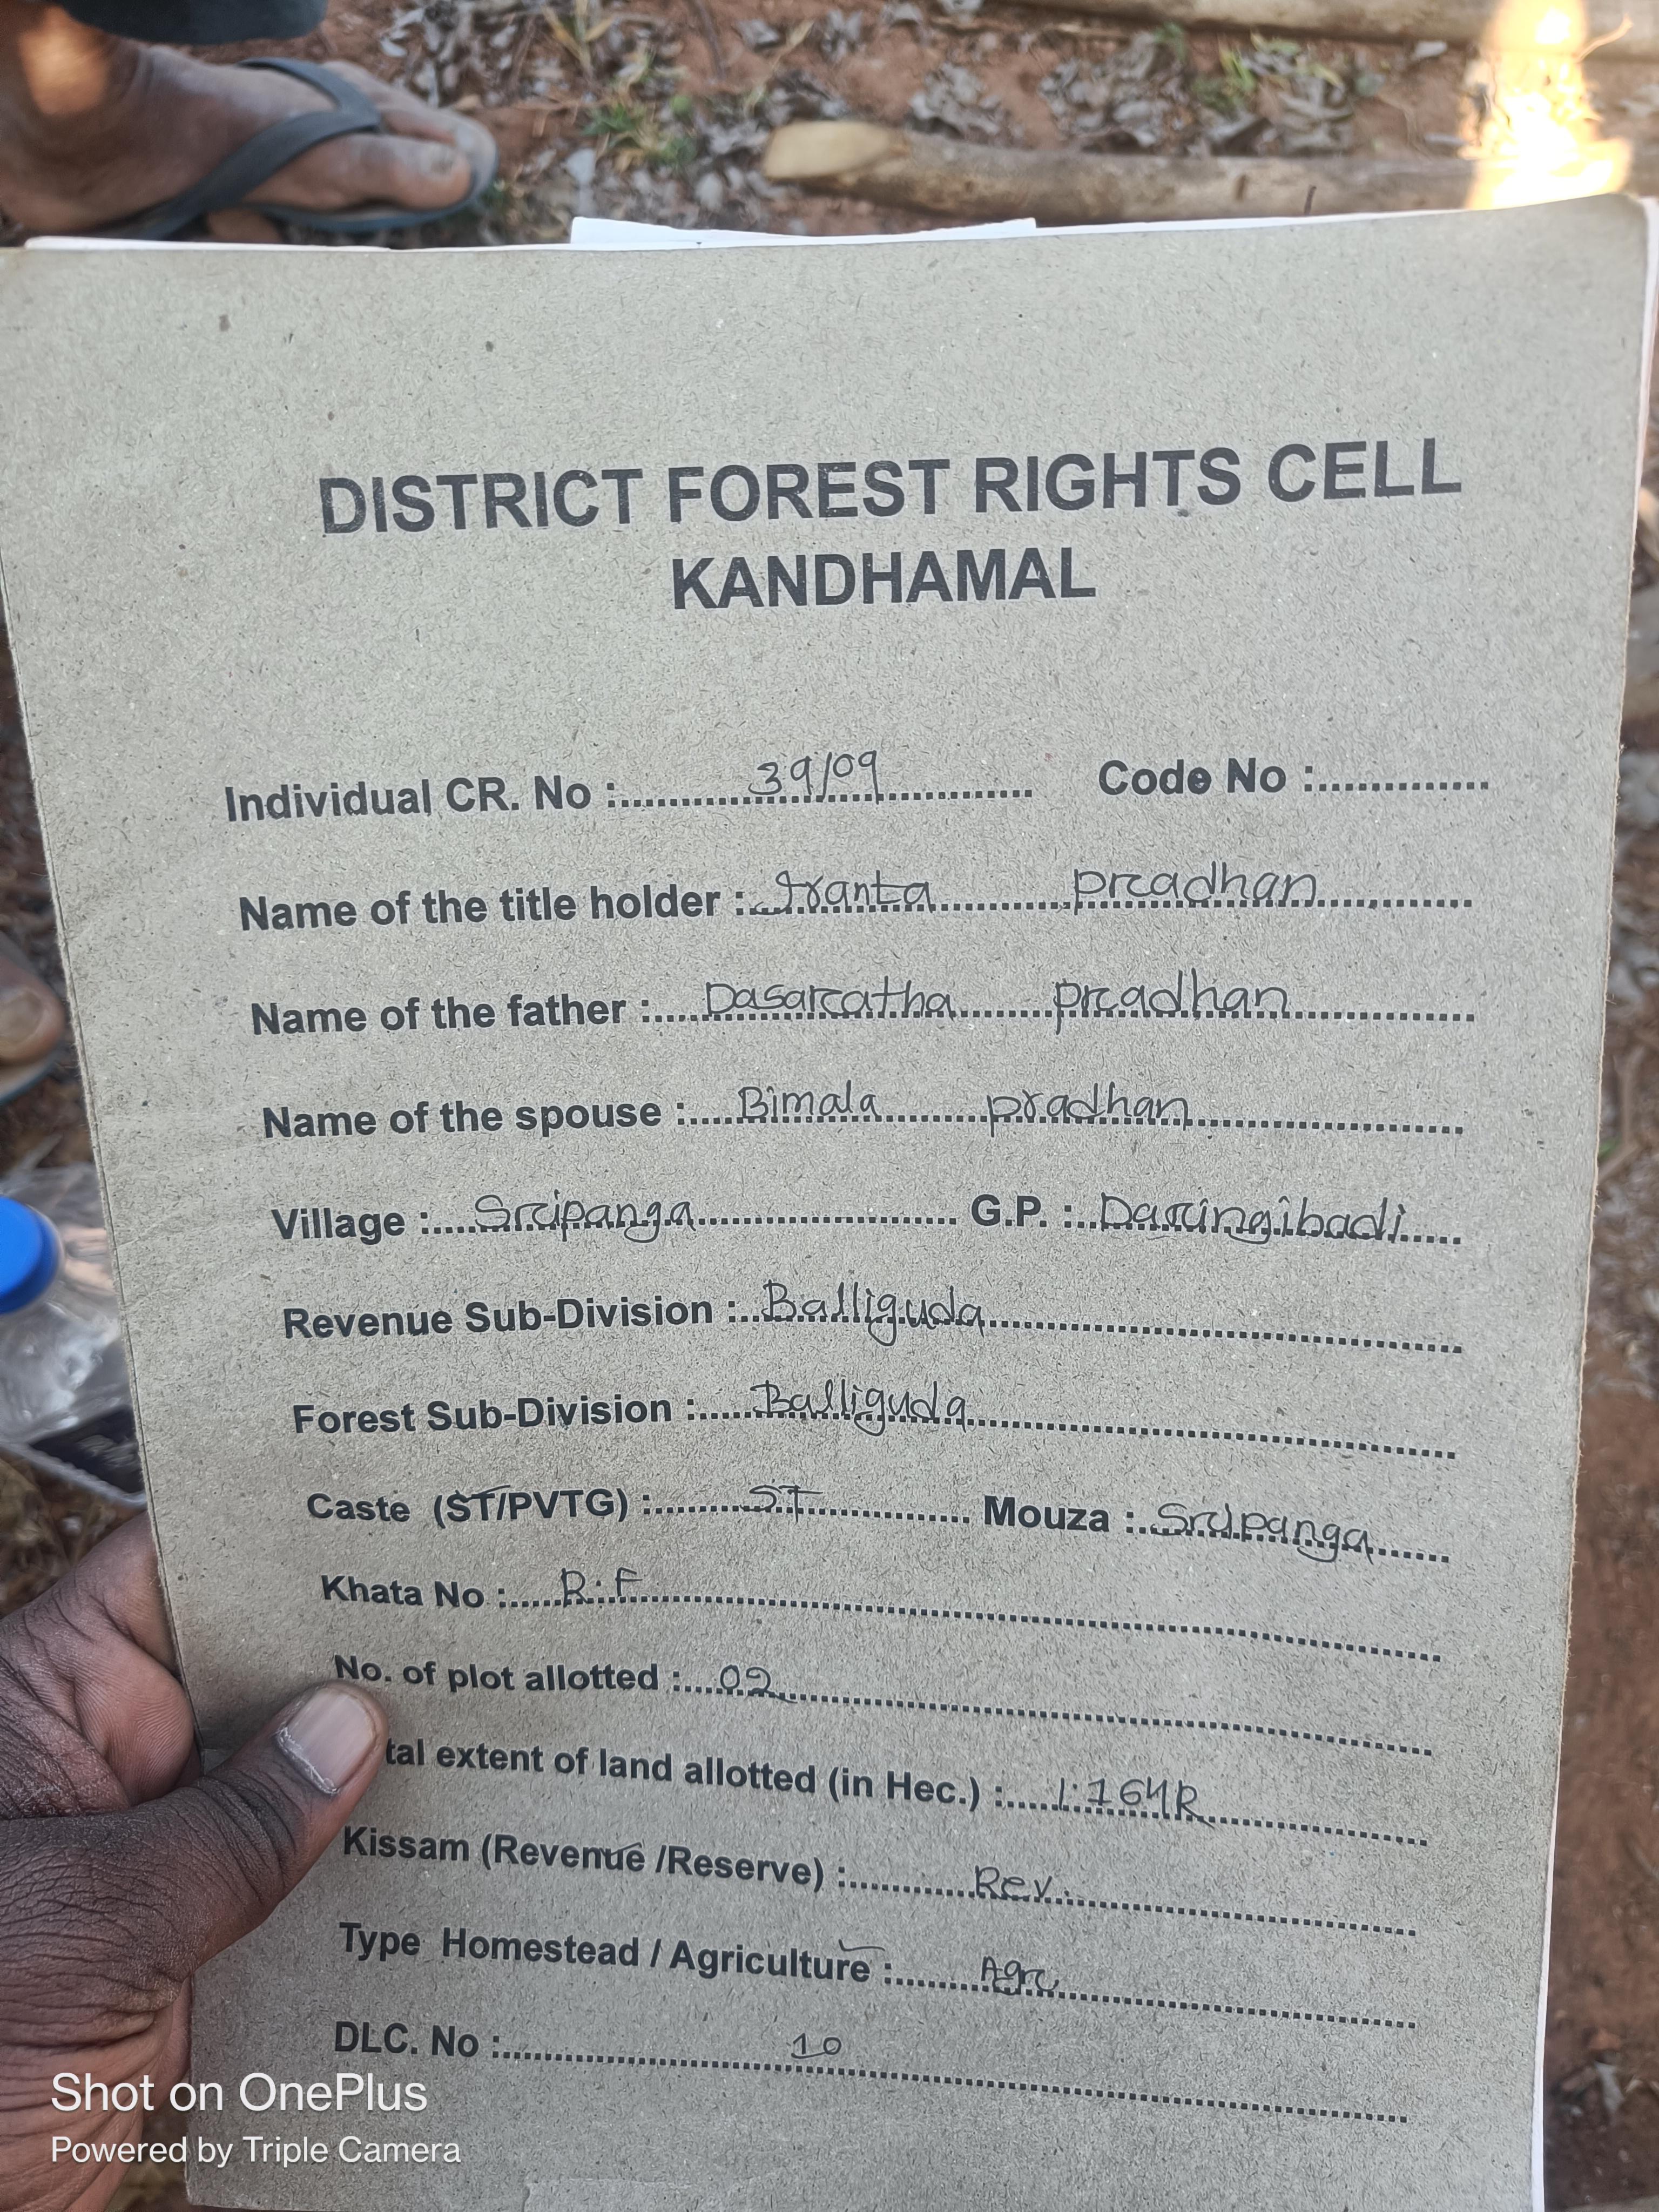 DISTRICT FOREST RIGHTS CELL
KANDHAMAL
Individual CR. No : 39/09 Code No :
Name of the title holder : pradhan
Name of the father : Dasaratha pradhan
Name of the spouse : Bimala pradhan
Village : Sripanga G.P. : Daringibadi
Revenue Sub-Division : Balliguda
Forest Sub-Division : Balliguda
Caste (ST/PVTG) : ST Mouza : Sripanga
Khata No : R.F
No. of plot allotted : 02
tal extent of land allotted (in Hec.) :
Kissam (Revenue /Reserve) : Rev.
Type Homestead / Agriculture : Agri
DLC. No : 10
Shot on OnePlus
Powered by Triple Camera